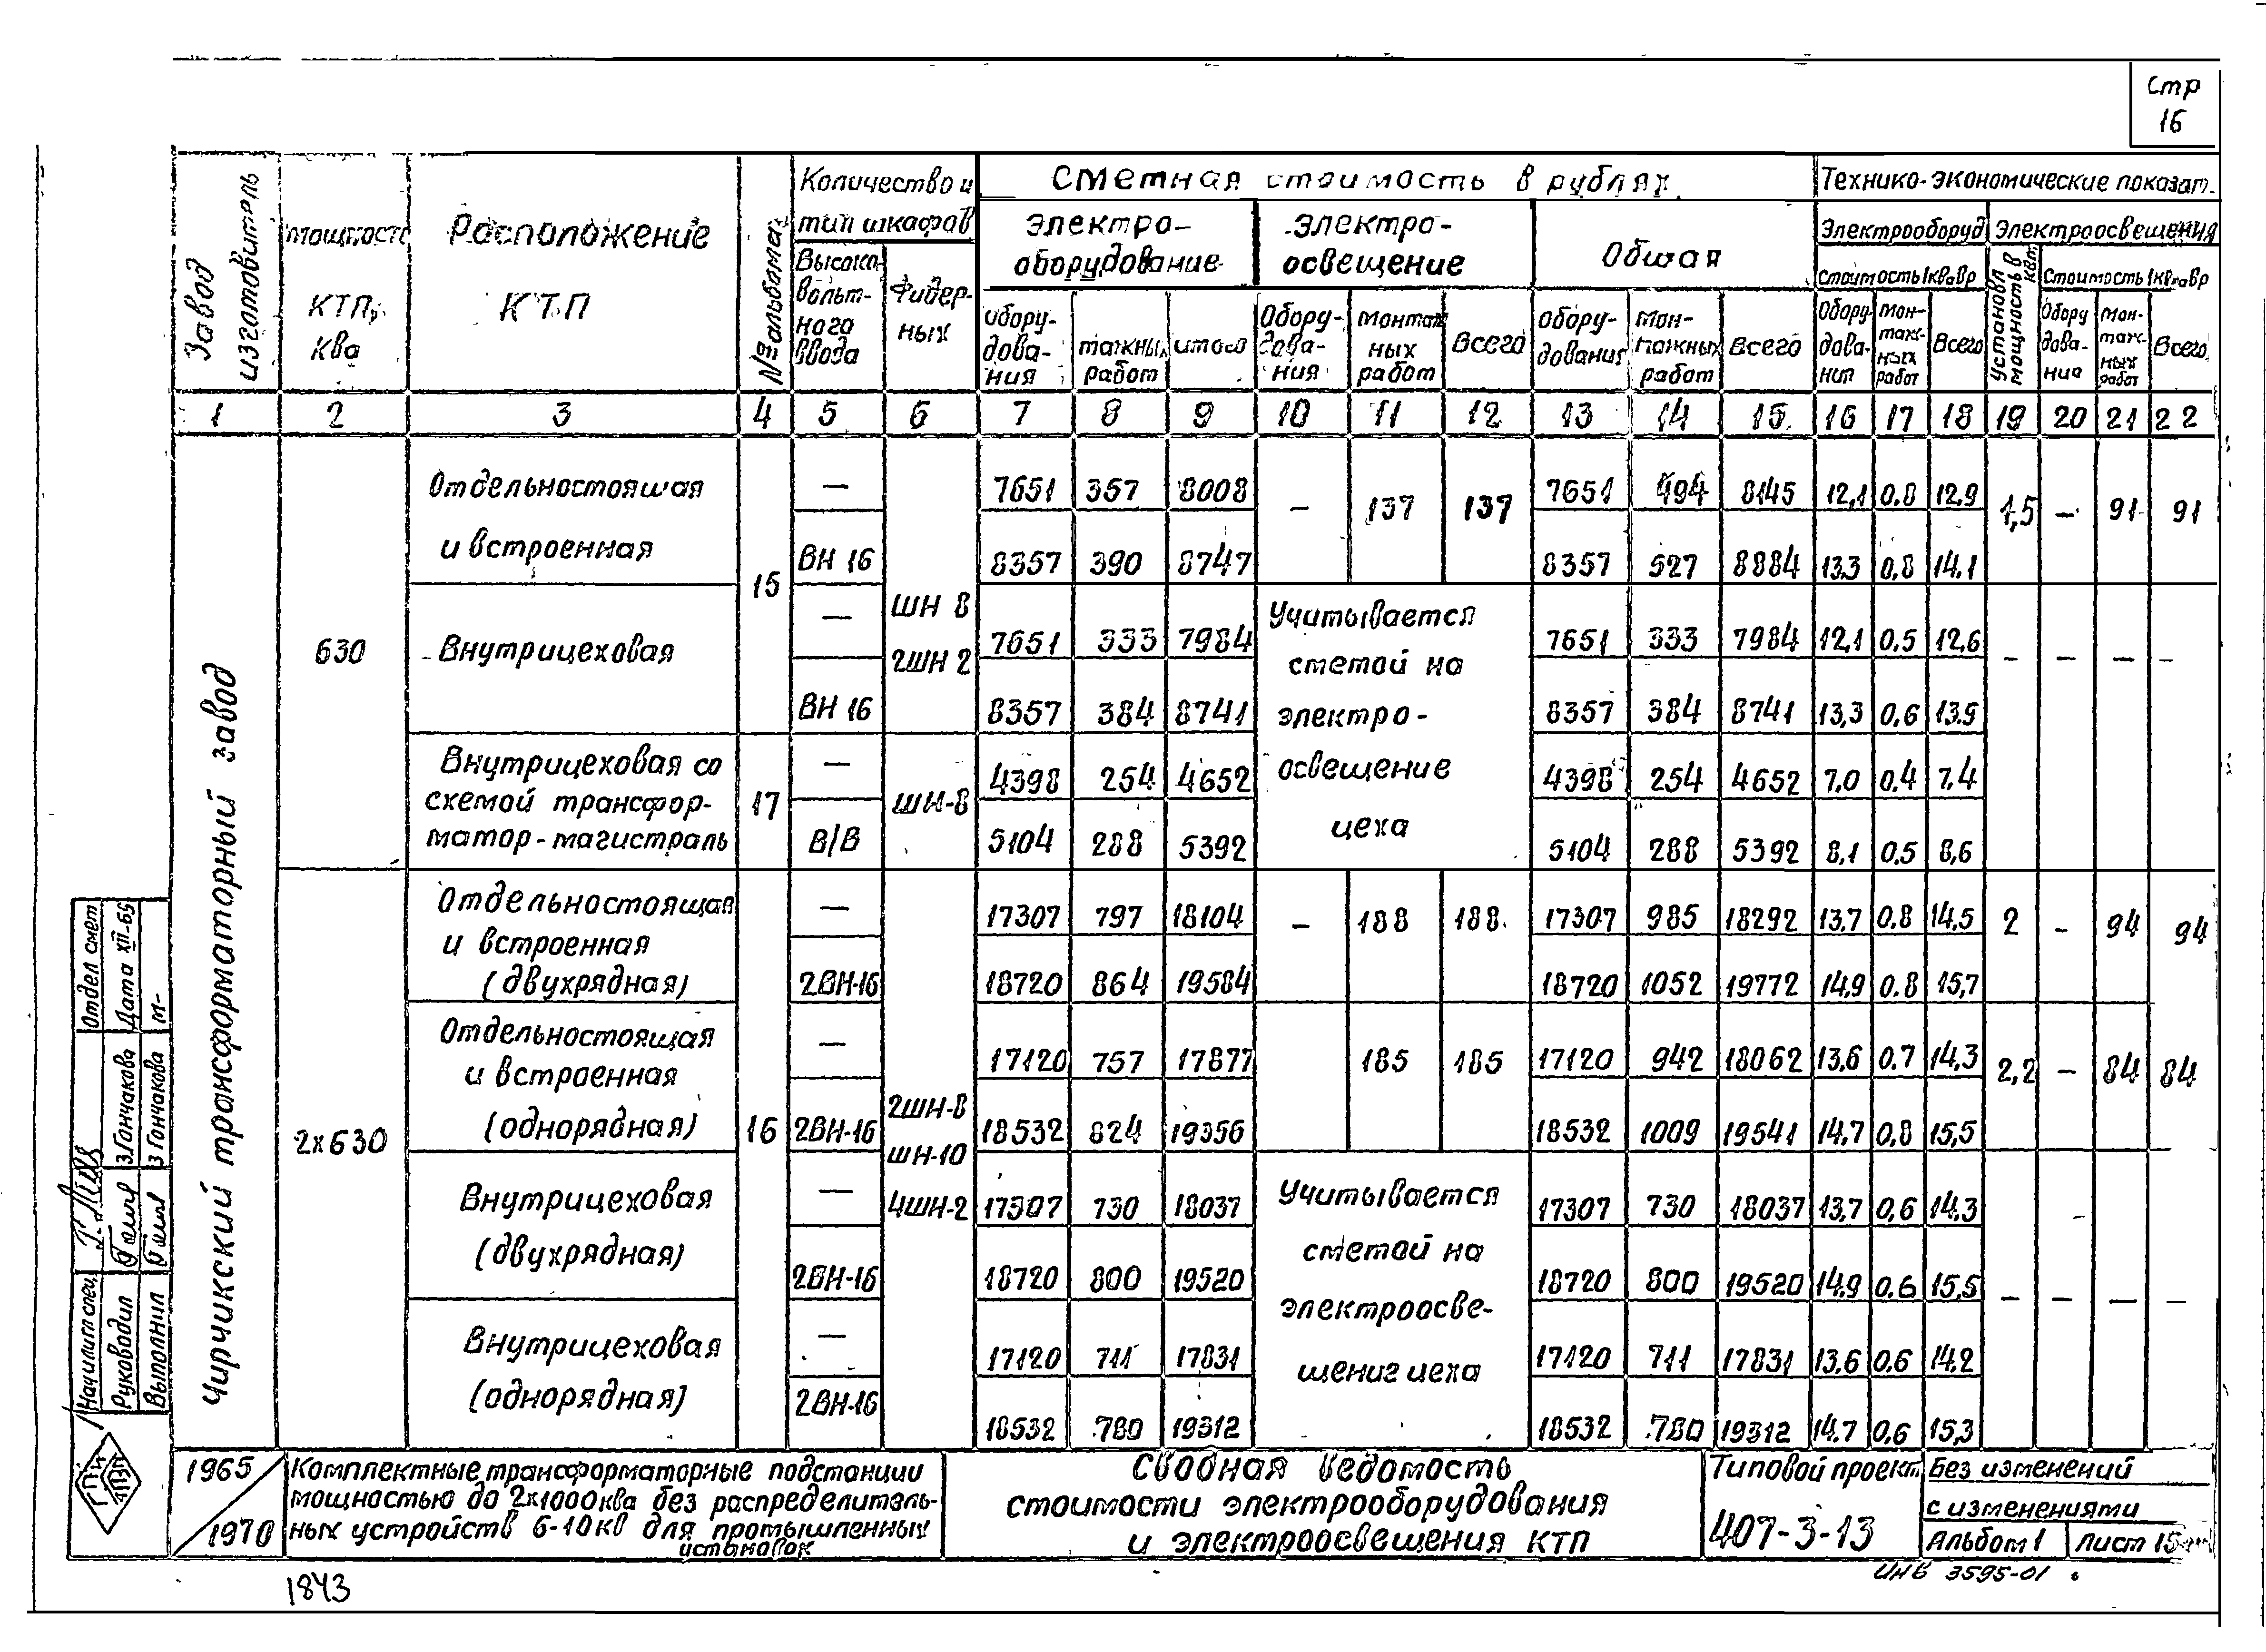 Стр
16
Завод изготовитель
мощность КТП, ква
Расположение КТП
№ альбома
Количество и тип шкафов
Высоковольтного ввода
Фидерных
Сметная стоимость в рублях
Электрооборудование
оборудования
тажных работ
итого
Электроосвещение
Оборудования
Монтажных работ
Всего
Общая
оборудования
монтажных работ
Всего
Технико-экономические показат.
Электрооборуд
Стоимость 1квавр
Оборудования
монтажных работ
Всего
Электроосвещения
Установл мощность в квт
Стоимость 1квтавр
Оборудования
монтажных работ
Всего
1 2 3 4 5 6 7 8 9 10 11 12 13 14 15 16 17 18 19 20 21 22
Чирчикский трансформаторный завод
630
Отдельностоящая
и встроенная
15
ШН 8
2ШН 2
— 7651 357 8008 – 137 137 7651 494 8145 12,1 0.8 12,9 1,5 – 91 91
ВН 16 8357 390 8747 8357 527 8884 13.3 0,8 14.1
Внутрицеховая
Учитывается
сметой на
электро-
освещение
цеха
— 7651 333 7984 7651 333 7984 12,1 0.5 12,6 – – – –
ВН 16 8357 384 8741 8357 384 8741 13,3 0,6 13.9
Внутрицеховая со
схемой трансфор-
матор-магистраль
17
ШН-8
— 4398 254 4652 4398 254 4652 7,0 0,4 7,4
В/В 5104 288 5392 5104 288 5392 8,1 0.5 8,6
2х630
Отдельностоящая
и встроенная
(двухрядная)
16
2ШН-8
ШН-10
4ШН-2
— 17307 797 18104 – 188 188. 17307 985 18292 13.7 0.8 14,5 2 – 94 94
2ВН-16 18720 864 19584 18720 1052 19772 14,9 0.8 15,7
Отдельностоящая
и встроенная
(однорядная)
— 17120 757 17877 185 185 17120 942 18062 13,6 0.7 14,3 2,2 – 84 84
2ВН-16 18532 824 19356 18532 1009 19541 14,7 0,8 15,5
Внутрицеховая
(двухрядная)
Учитывается
сметой на
электроосве-
щениг цеха
— 17307 730 18037 17307 730 18037 13,7 0,6 14.3
2ВН-16 18720 800 19520 18720 800 19520 14.9 0.6 15,5 – – – –
Внутрицеховая
(однорядная)
— 17120 711 17831 17120 711 17831 13.6 0.6 14.2
2ВН-16 18532 780 19312 18532 780 19312 14.7 0.6 15,3
Отдел смет
Дата XII-69
Руководил З.Гончакова
Выполнил З Гончакова
1965
1970
Комплектные трансформаторные подстанции
мощностью до 2х1000ква без распределитель-
ных устройств 6-10кв для промышленных
установок
Сводная ведомость
стоимости электрооборудования
и электроосвещения КТП
Типовой проект
407-3-13
Без изменений
с изменениями
Альбом 1
Лист 15
ИНВ 3595-01
1843